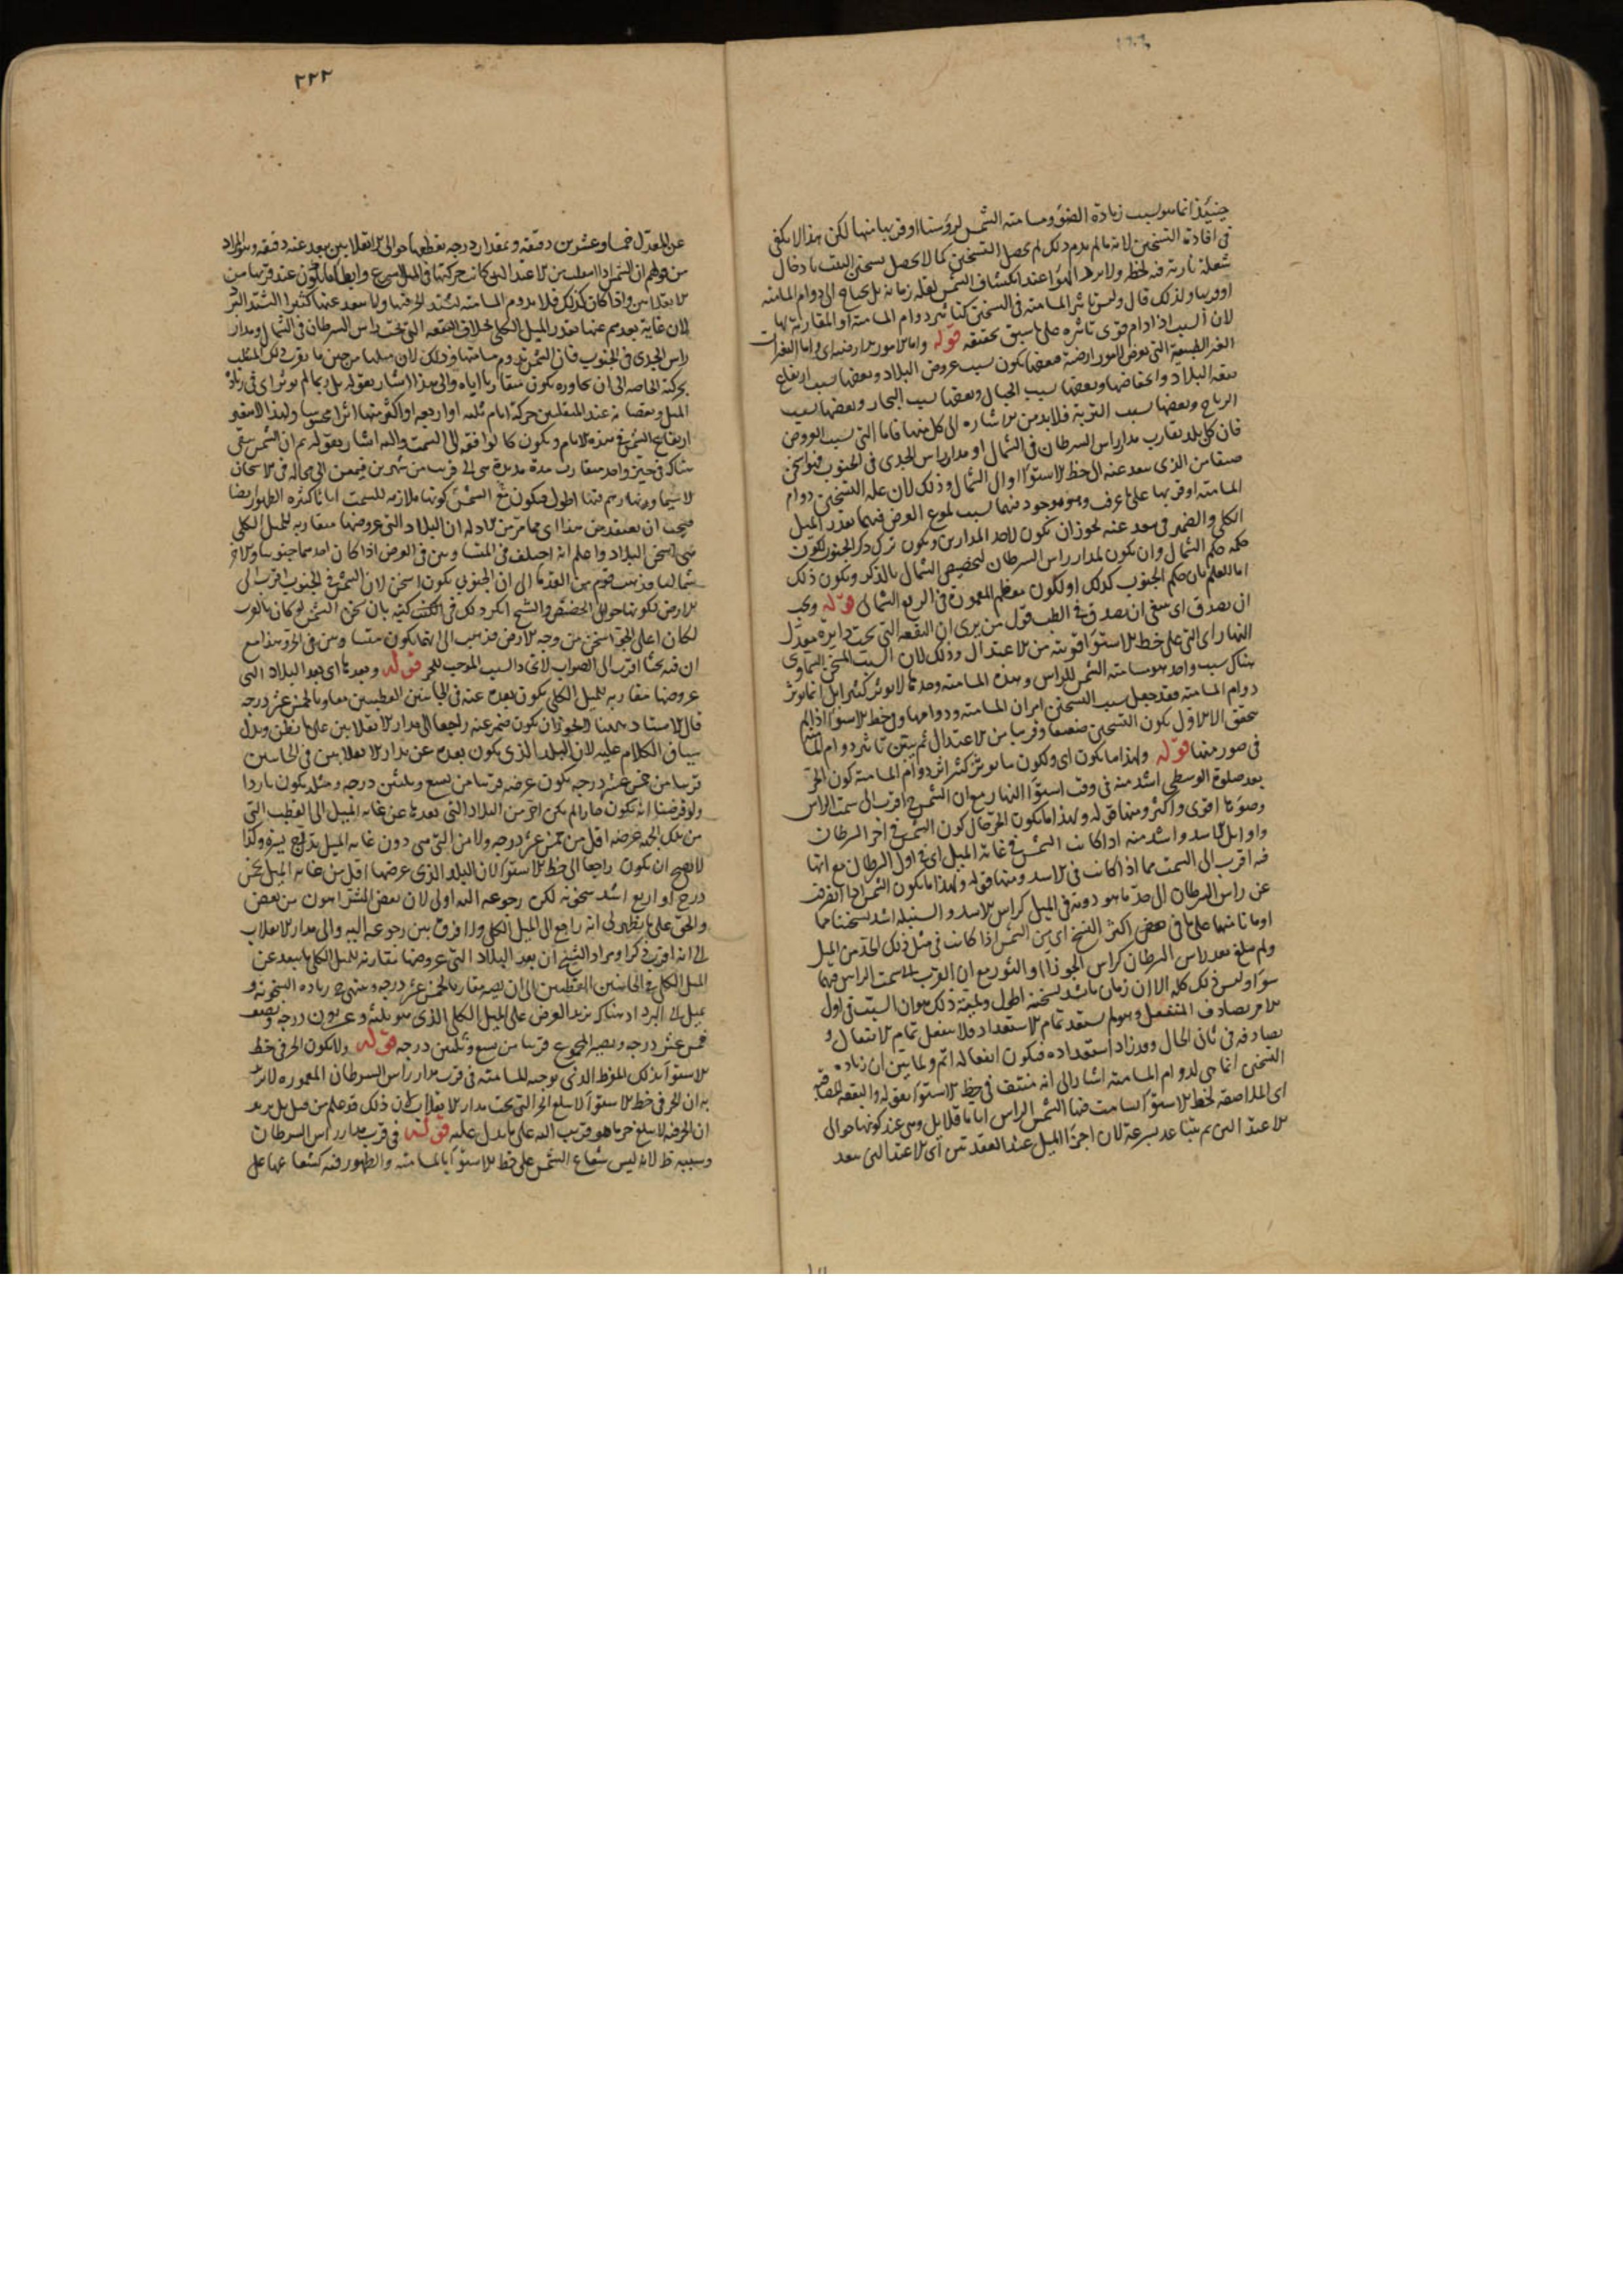 حينئذ انما هو لسبب زيادة الضوء ومسامته الشمس لرؤسنا او قربها منها لكن هذا لا يكفي
في افادة التسخين لانه ما لم يدم ذلك لم يحصل التسخين كما لا يحصل تسخين البيت بادخال
شعلة نارية فيه لحظة ولا يبرد الهواء عند انكساف الشمس لقلة زمانه بل يحتاج الى دوام المسامته
او قربها ولذلك قال وليس تاثير المسامته في التسخين كتاثير دوام المسامته او المقاربة لها
لان السبب اذا دام قوى تاثيره على ما سبق تحقيقه قوله واما الامور الارضية اى واما التغيرات
الغير الطبيعية التي تعرض لامور ارضية فبعضها يكون بسبب عروض البلاد وبعضها بسبب ارتفاع
بقعة البلاد وانخفاضها وبعضها بسبب الجبال وبعضها بسبب البحار وبعضها بسبب
الرياح وبعضها بسبب التربة فلا بد من الاشارة الى كل منها فاما التي بسبب العروض
فان كل بلد يقارب مدار راس السرطان في الشمال او مدار راس الجدى في الجنوب فهو اسخن
صيفا من الذى يبعد عنه الى خط الاستواء او الى الشمال وذلك لان علة التسخين دوام
المسامته او قربها على ما عرف وهو موجود فيهما بسبب بلوغ العرض فيهما بقدر الميل
الكلى والضمير في يبعد عنه يجوز ان يكون لاحد المدارين ويكون ترك ذكر الجنوب لكون
حكمه حكم الشمال وان يكون لمدار راس السرطان لتخصيص الشمال بالذكر ويكون ذلك
اما للعلم بان حكم الجنوب كذلك او لكون معظم المعمورة في الربع الشمالى قوله ويجب
ان يصدق اى ينبغي ان يصدق في الطب قول من يرى ان البقعة التي تحت دايرة معدل
النهار اى التي على خط الاستواء قريبة من الاعتدال وذلك لان السبب المسخن السماوى
هناك سبب واحد هو مسامته الشمس للراس وهذه المسامته وحدها لا تؤثر كثيرا بل انما يؤثر
دوام المسامته فقد جعل سبب التسخين امران المسامته ودوامها وفي خط الاستواء اذا لم
يتحقق الا الاول يكون التسخين ضعيفا وقريبا من الاعتدال ثم بين تاثير دوام المسامته
في صور منها قوله ولهذا ما يكون اى ولكون ما يؤثر كثيرا اثر دوام المسامته كون الحر
بعد صلوة الوسطى اشد منه في وقت استواء النهار مع ان الشمس ح اقرب الى سمت الراس
وضوءها اقوى واكثر ومنها قوله ولهذا ما يكون الحر حال كون الشمس في اخر السرطان
واوايل الاسد اشد منه اذا كانت الشمس في غاية الميل اى في اول السرطان مع انها
فيه اقرب الى السمت مما اذا كانت في الاسد ومنها قوله ولهذا ما يكون الشمس اذا انصرفت
عن راس السرطان الى حد ما هو دونه في الميل كراس الاسد والسنبلة اشد تسخينا مما
او ما تامنها على ما في بعض اكثر النسخ اى من الشمس اذا كانت في مثل ذلك الحد من الميل
ولم تبلغ بعد راس السرطان كراس الجوزاء والثور مع ان القرب الى سمت الراس فيهما
سواء وليس ذلك كله الا لان زمان ما اشد تسخينه اطول ولمية ذلك هو ان السبب في اول
الامر يصادف المنفعل وهو لم يستعد تمام الاستعداد فلا ينفعل تمام الانفعال و
يصادفه في ثانى الحال وقد زاد استعداده فيكون انفعاله اتم ولما بين ان زيادة
التسخين انما هى لدوام المسامته اشار الى انه منتف في خط الاستواء بقوله والبقعة المصاقبة
اى الملاصقة لخط الاستواء تسامت فيها الشمس الراس اياما قلايل وهى عند كونها حوالى
الاعتدالين ثم يتباعد بسرعة لان اجزاء الميل عند العقدتين اى الاعتدالين يبعد
٢٢٢
عن المعدل خمسا وعشرين دقيقة وبمقدار درجة تقطعها حوالى الانقلابين يبعد عنه دقيقة وهو المراد
من قولهم ان الشمس اذا انقلبت من الاعتدالين كانت حركتها في الميل اسرع وابطا ما يكون عند قربها من
الانقلابين واذا كان كذلك فلا يدوم المسامته ليشتد الحر فيها ولا يبعد عنها كثيرا ليشتد البرد
لان غاية بعدهم عنها بقدر الميل الكلى بخلاف البقعة التي تحت راس السرطان في الشمال ومدار
راس الجدى في الجنوب فان الشمس تدوم مسامتها وذلك لان ميلها من حين ما يقرب ذلك المنقلب
بحركته الخاصة الى ان يجاوره يكون متقاربا اياه والى هذا اشار بقوله بل ربما لم يؤثر اى في زيادة
الميل ونقصانه عند المنقلبين حركة ايام ثلثة او اربعة او اكثر منها اثرا محسوسا ولهذا لا يتفاوت
ارتفاع الشمس في هذه الايام ويكون كالواقفة في السمت واليه اشار بقوله ثم ان الشمس تبقى
هناك في حيز واحد متقارب مدة مديدة هى الى قريب من شهرين فيمعن الى محالة في الاسخان
لا سيما ونهارهم فيها اطول فيكون مع السمت كونها ملازمة للسمت اياما كثيرة الظهور ايضا
فيجب ان يعتقد من هذا اى مما مر من الادلة ان البلاد التي عروضها متقاربة للميل الكلى
هى اسخن البلاد واعلم انه اختلف في المتساويين في العرض اذا كان احدهما جنوبيا والاخر
شماليا فذهب قوم من القدما الى ان الجنوبى يكون اسخن لان الشمس في الجنوب اقرب الى
الارض لكونها حوالى الحضيض والشيخ انكر ذلك في كتب كثيرة بان سخن الشمس لو كان بالقرب
لكان اعلى الجو اسخن من وجه الارض فذهب الى انهما يكونان متساويين في الحر وهذا مع
ان فيه بحثا اقرب الى الصواب لاتحاد السبب الموجب للحر قوله وبعدها اى بعد البلاد التي
عروضها مقاربة للميل الكلى يكون بعده عنه في الجانبين القطبيين مقاربا لخمس عشر درجة
قال الاستاد ههنا لا يجوز ان يكون ضمير عنه راجعا الى مدار الانقلابين على ما يظن ويدل
سياق الكلام عليه لان البلد الذى يكون بعده عن مدار الانقلابين في الجانبين
قريبا من خمس عشر درجة يكون عرضه قريبا من تسع وثلثين درجة ومثله يكون باردا
ولو فرضنا انه يكون حارا لم يكن احر من البلاد التي بعدها عن غاية الميل الى القطب التي
من تلك الجهة عرضه اقل من خمس عشر درجة ولا من التي هى دون غاية الميل بدرج يسيرة وكذا
لا يصح ان يكون راجعا الى خط الاستواء لان البلد الذى عرضها اقل من غاية الميل بخمس
درج او اربع اشد سخونة لكن رجوعه اليه اولى لان بعض الشر اهون من بعض
والحق على ما يظهر لى انه راجع الى الميل الكلى ولا فرق بين رجوعه اليه والى مدار الانقلاب
الا انه اقرب ذكرا ومراد الشيخ ان بعد البلاد التي عروضها مقاربة للميل الكلى ما يبعد عن
الميل الكلى في الجانبين القطبيين الى ان يصير مقاربا لخمس عشر درجة وينتهى ح زيادة السخونة و
يميل الى البرد اذ هناك يزيد العرض على الميل الكلى الذى هو ثلثة وعشرون درجة ونصف
خمس عشر درجة ويصير المجموع قريبا من تسع وثلثين درجة قوله ولا يكون الحر في خط
الاستواء بذلك المفرط الذى يوجبه المسامته في قرب مدار راس السرطان المعمورة لا يريد
به ان الحر في خط الاستواء لا يبلغ الحر التي تحت مدار الانقلاب لان ذلك قد علم من قبل بل يريد
ان الحر فيه لا يبلغ حر ما هو قريب اليه على ما يدل عليه قوله في قرب مدار راس السرطان
وسببه ظ لانه ليس شعاع الشمس على خط الاستواء بالمسامته والظهور فيه كشعاعها على